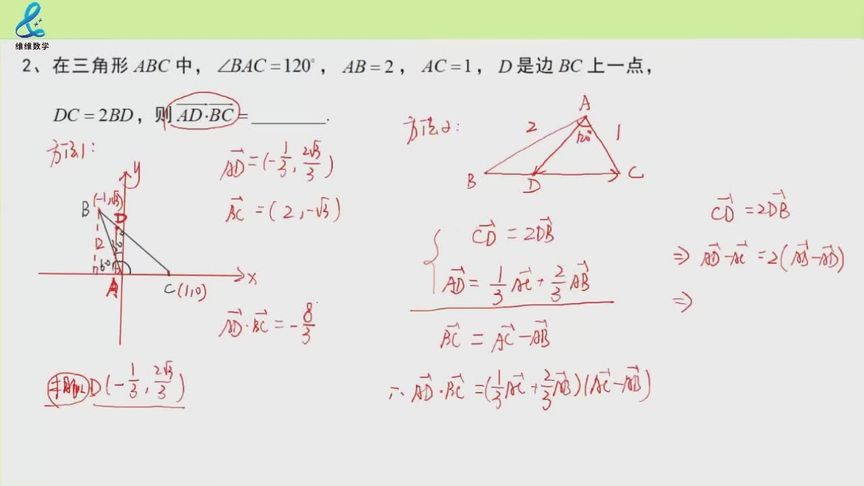 维维数学
2、在三角形 ABC 中，∠BAC = 120°，AB = 2，AC = 1，D 是边 BC 上一点，
DC = 2BD，则 AD·BC = ________.
方法1:
y
B (-1,√3)
D
2
60°
A
C(1,0)
x
AD = (-1/3, 2√3/3)
BC = (2, -√3)
AD·BC = -8/3
D(-1/3, 2√3/3)
方法2:
A
2
120°
1
B
D
C
CD = 2DB
AD = 1/3 AC + 2/3 AB
BC = AC - AB
∴ AD·BC = (1/3 AC + 2/3 AB)(AC - AB)
CD = 2DB
⇒ AD - AC = 2(AB - AD)
⇒